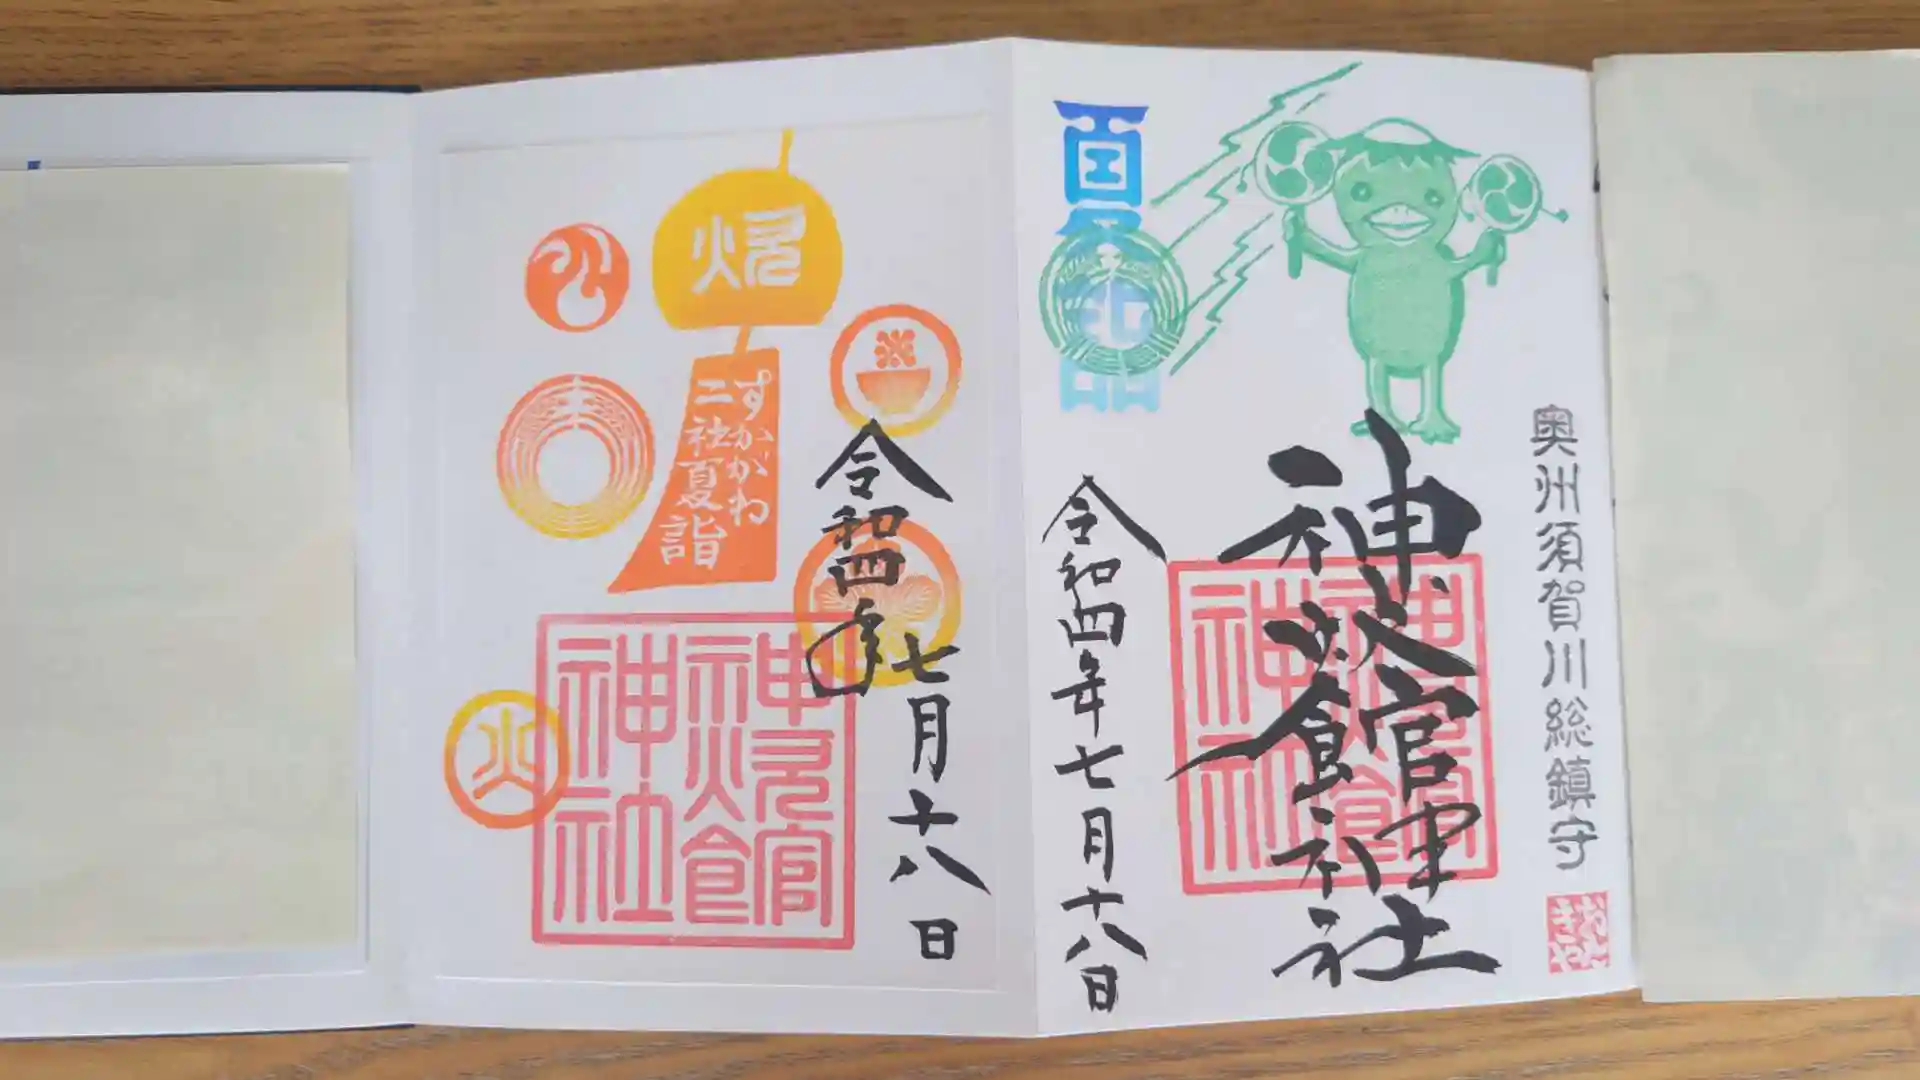 奥州須賀川総鎮守
おた
きや
神炊館神社
神炊館
神社
夏
令和四年七月十八日
令和四年
七月十八日
すかがわ
二社夏詣
神炊館
神社
火